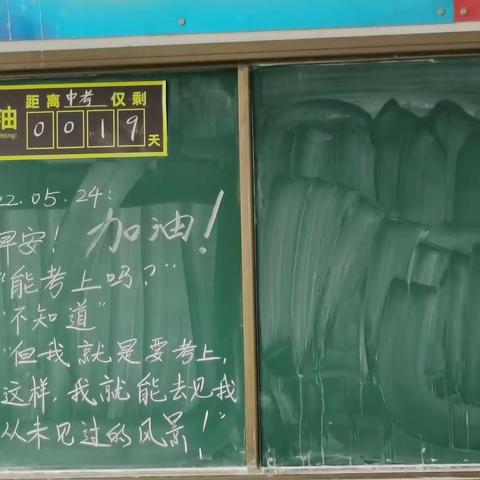 油 距离中考仅剩
hting!
0019天
22.05.24:
早安! 加油!
"能考上吗?"
"不知道"
"但我就是要考上,
这样,我就能去见我
从未见过的风景!"